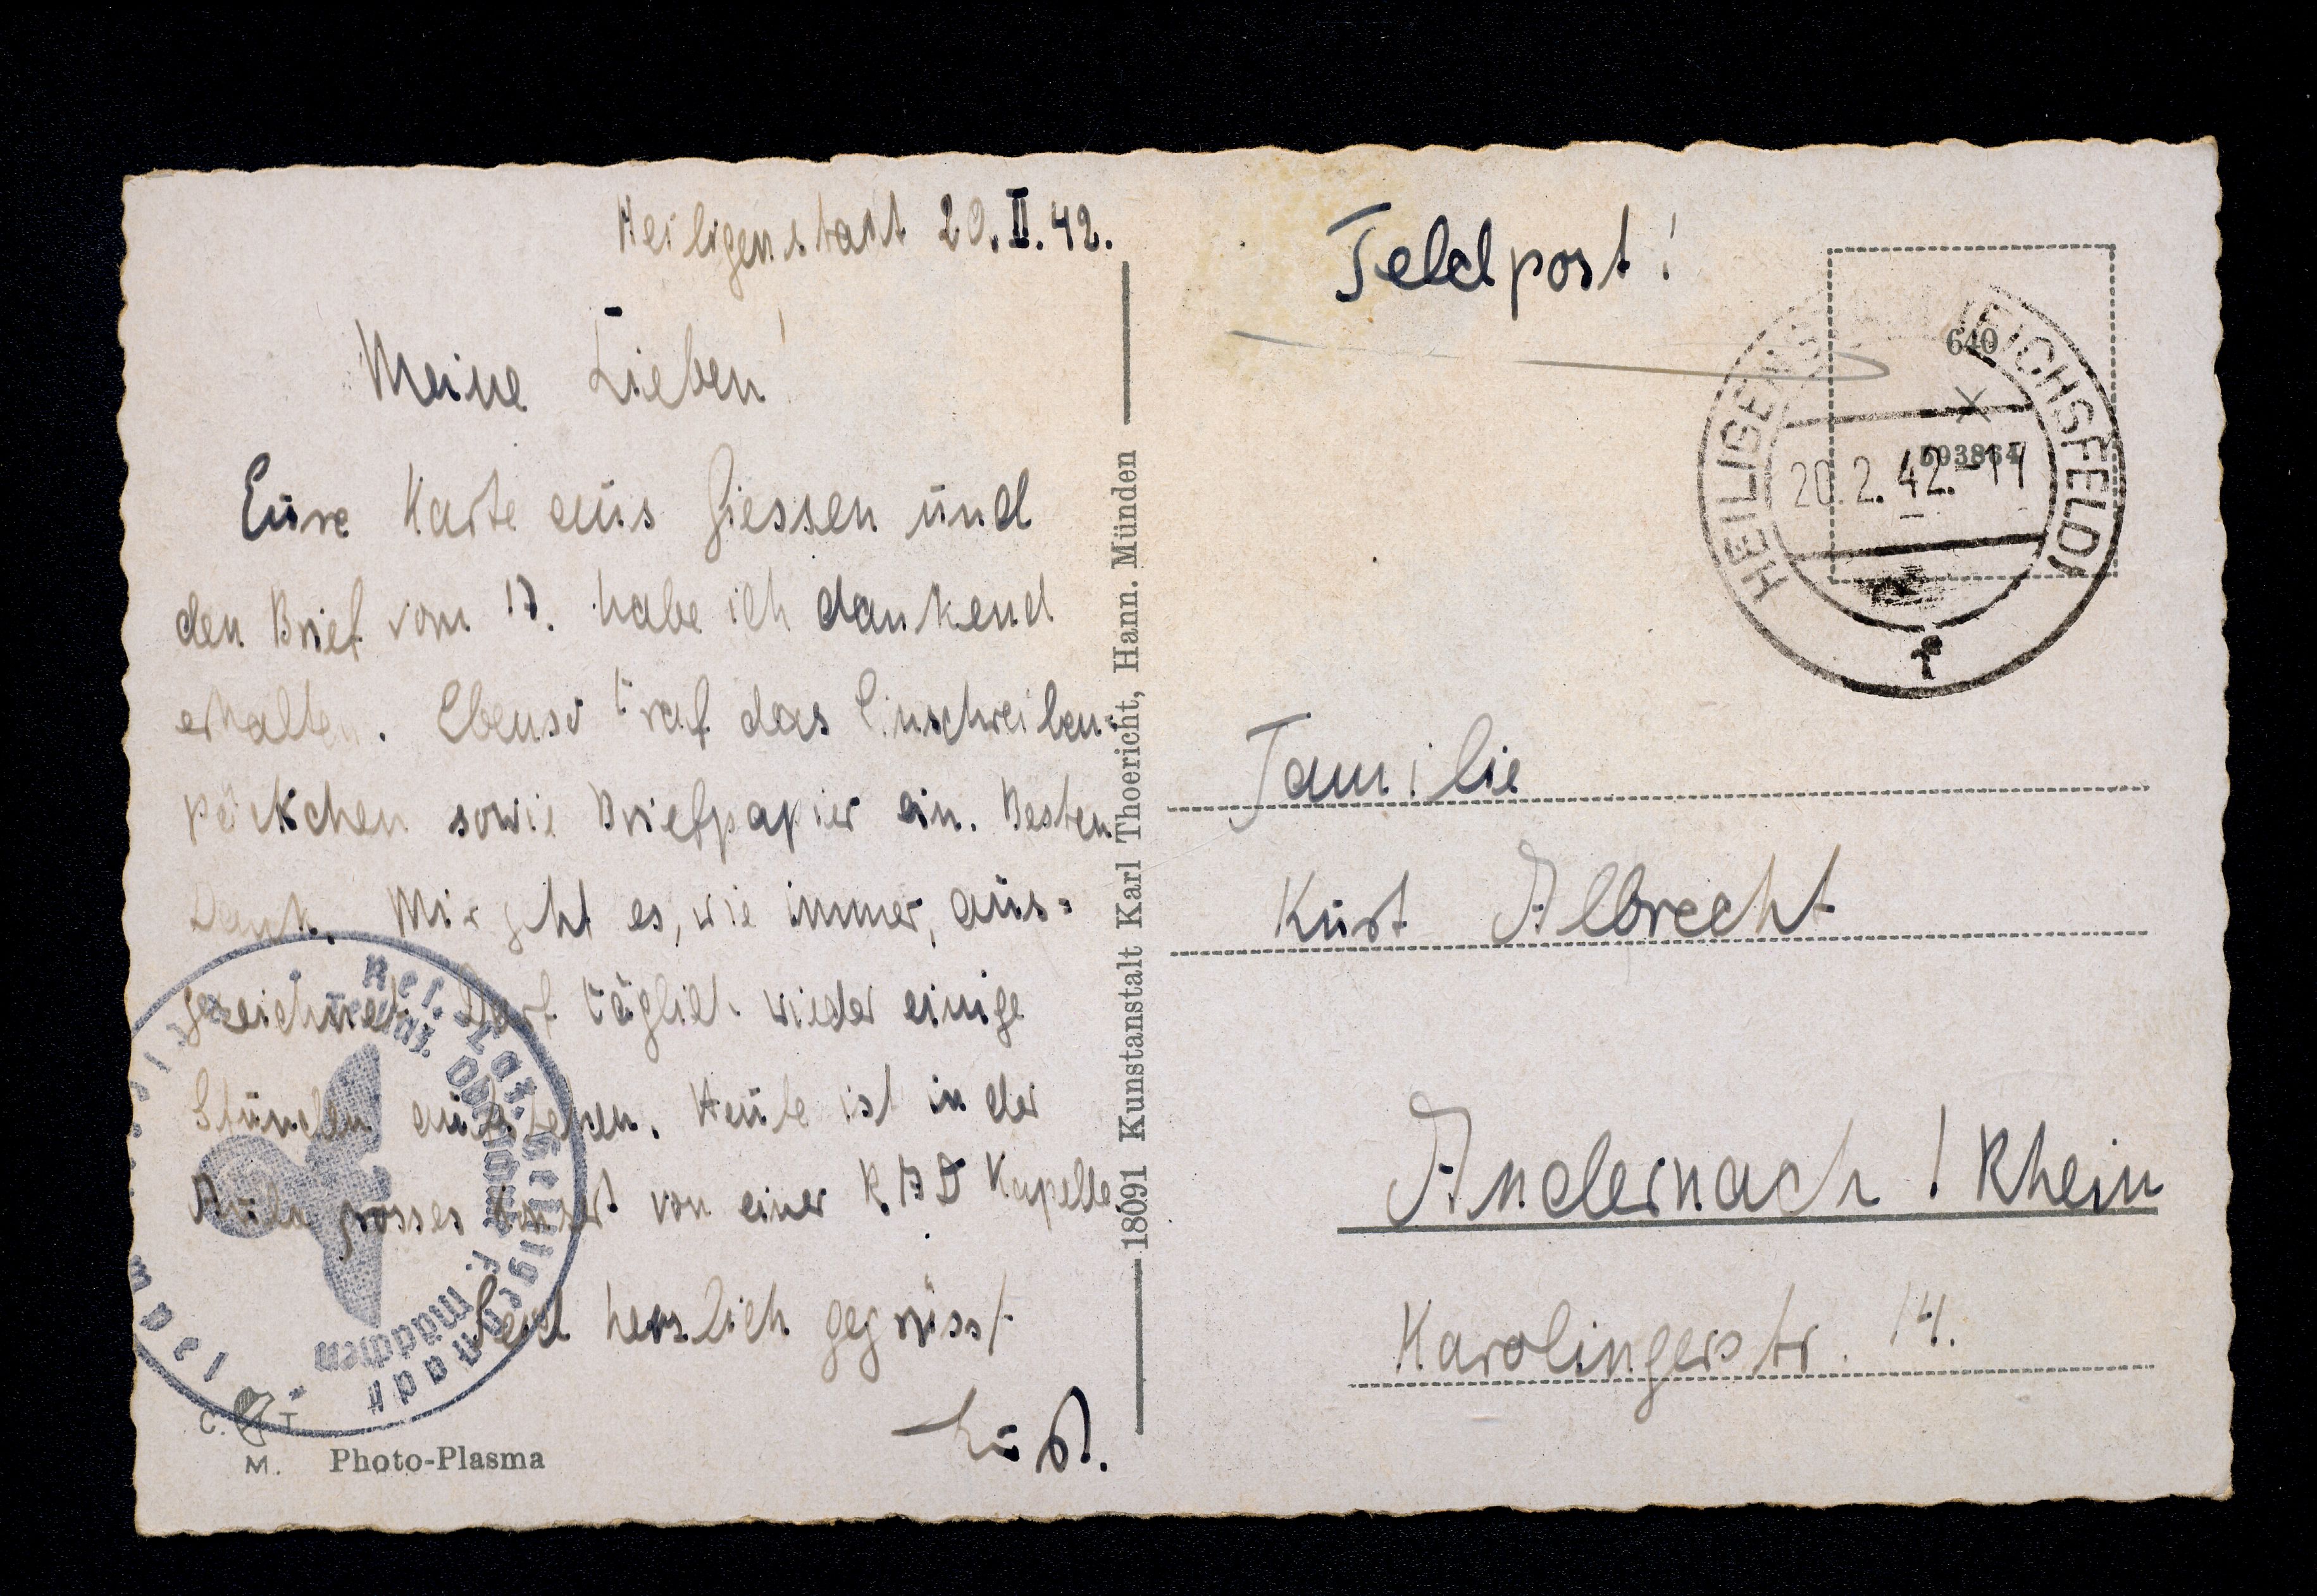 Heiligenstadt 20.II.42.
Meine Lieben!
Eure Karte aus Giessen und
den Brief vom 17. habe ich dankend
erhalten. Ebenso traf das Einschreiben-
päckchen sowie Briefpapier ein. Besten
Dank. Mir geht es, wie immer, aus=
gezeichnet. Darf täglich wieder einige
Stunden aufstehen. Heute ist in der
Aula grosses Konzert von einer RAD Kapelle.
Seid herzlich gegrüsst
Res.-Laz. Heiligenstadt
Teillaz. Oberschule f. Mädchen
C. T.
M.
Photo-Plasma
18091 Kunstanstalt Karl Thoericht, Hann. Münden
Feldpost!
640
593864
HEILIGENSTADT (EICHSFELD)
20.2.42.-17
f
Familie
Kurt Albrecht
Andernach / Rhein
Karolingerstr. 14.